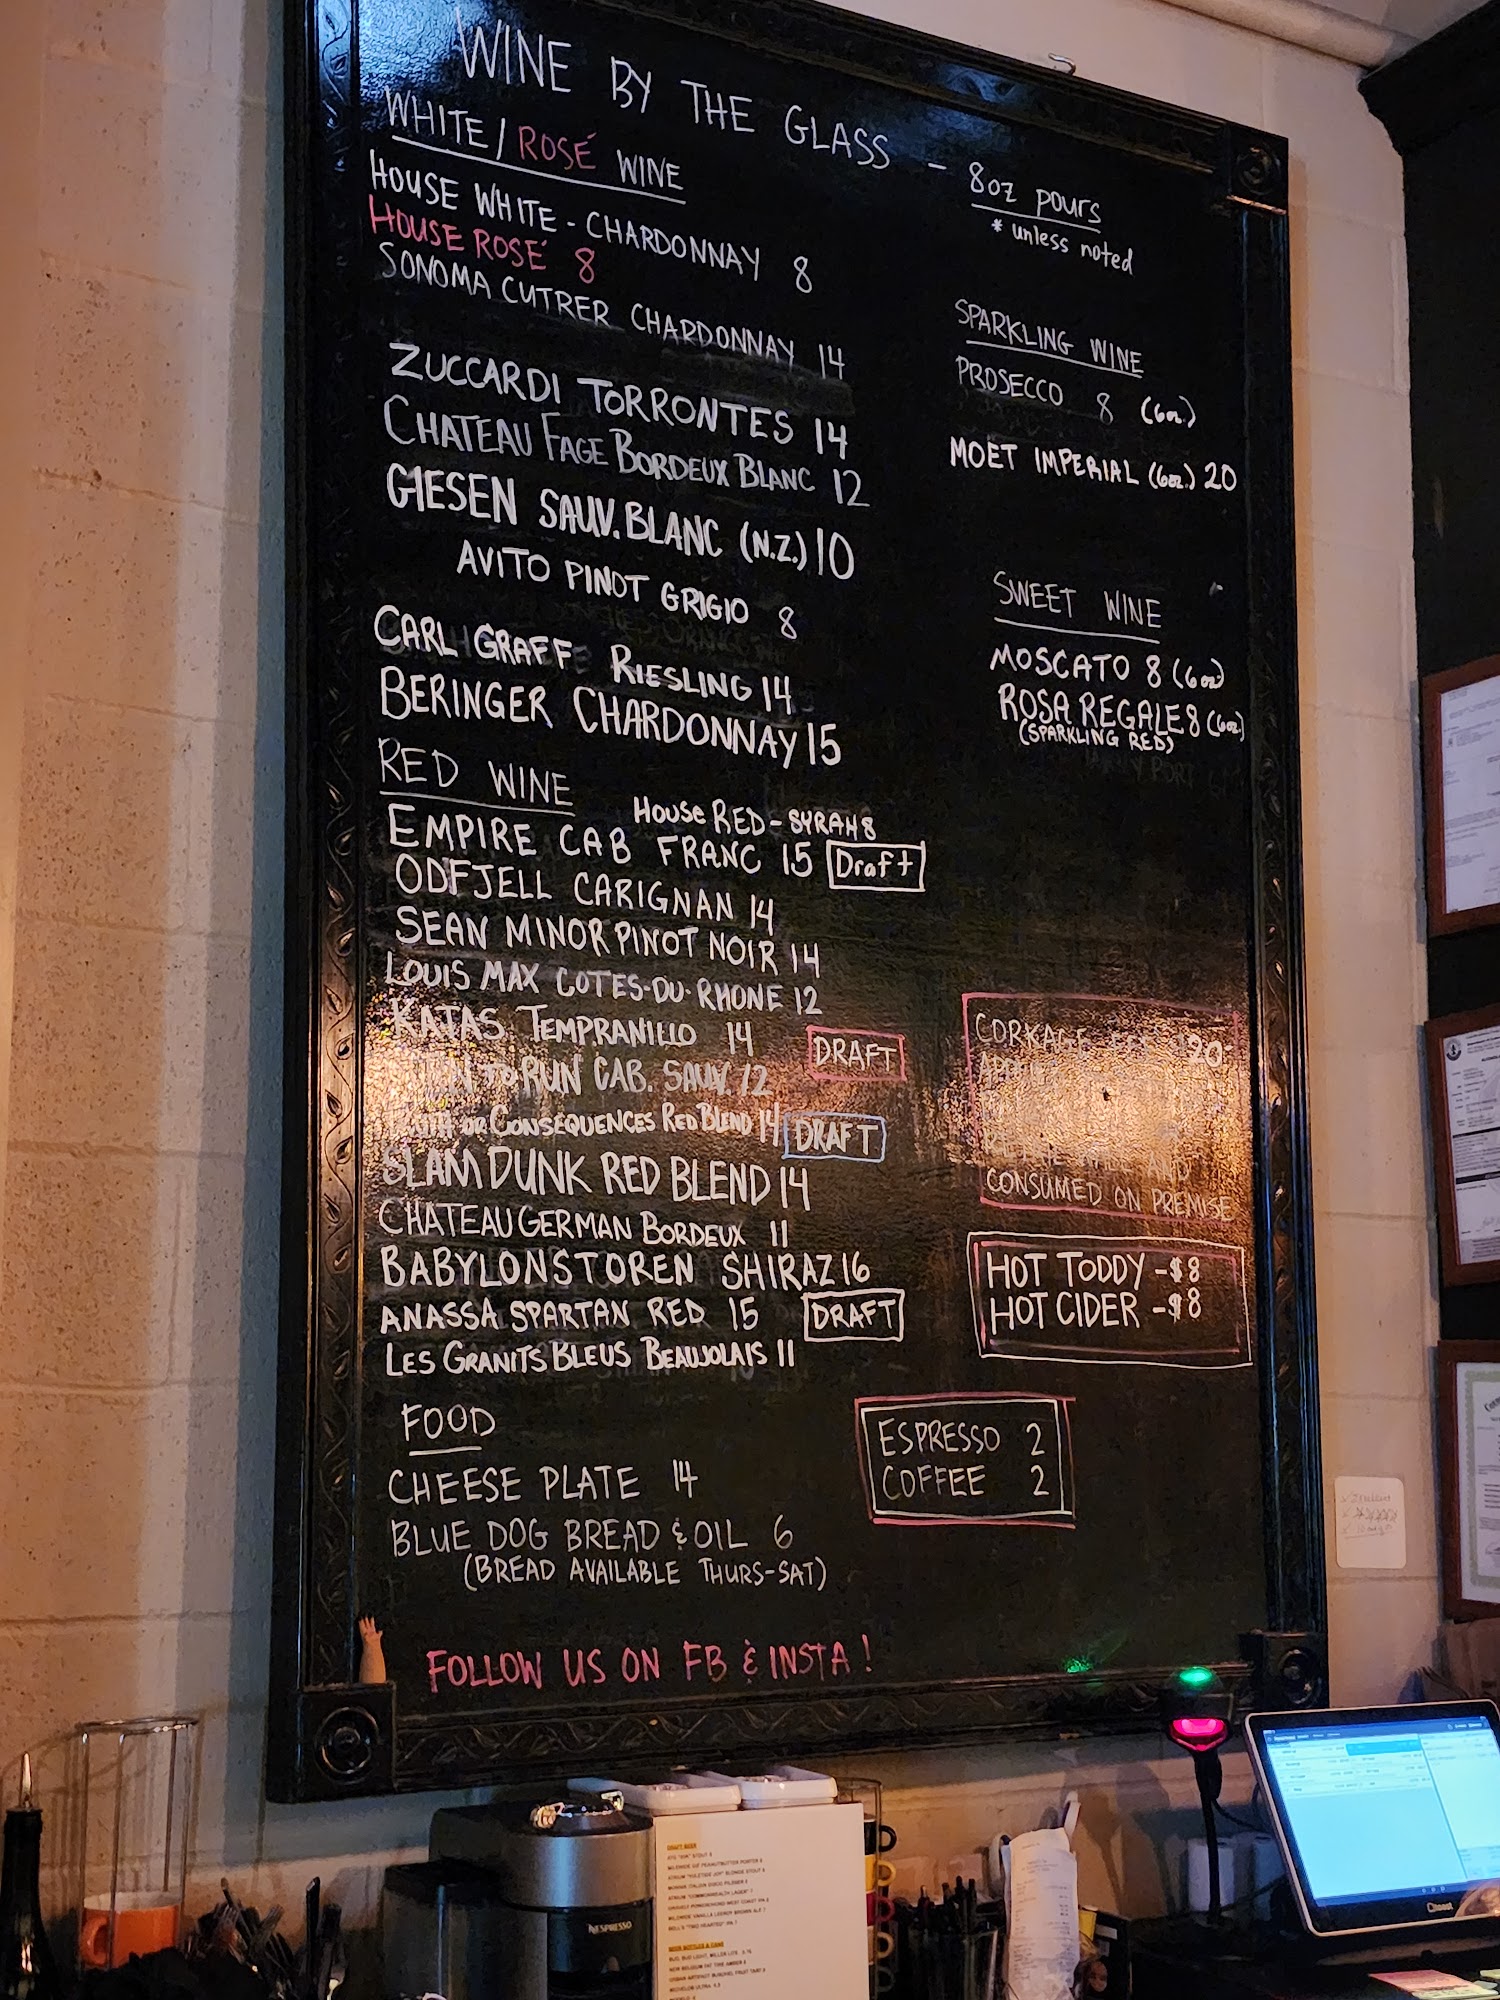 WINE BY THE GLASS - 8oz pours
* unless noted
WHITE/ROSÉ WINE
HOUSE WHITE - CHARDONNAY 8
HOUSE ROSÉ 8
SONOMA CUTRER CHARDONNAY 14
ZUCCARDI TORRONTES 14
CHATEAU FAGE BORDEUX BLANC 12
GIESEN SAUV. BLANC (N.Z.) 10
AVITO PINOT GRIGIO 8
CARL GRAFF RIESLING 14
BERINGER CHARDONNAY 15
RED WINE
HOUSE RED - SYRAH 8
EMPIRE CAB FRANC 15 Draft
ODFJELL CARIGNAN 14
SEAN MINOR PINOT NOIR 14
LOUIS MAX COTES-DU-RHONE 12
KATAS TEMPRANILLO 14 DRAFT
TO RUN CAB. SAUV. 12
OR CONSEQUENCES RED BLEND 14 DRAFT
SLAM DUNK RED BLEND 14
CHATEAU GERMAN BORDEUX 11
BABYLONSTOREN SHIRAZ 16
ANASSA SPARTAN RED 15 DRAFT
LES GRANITS BLEUS BEAUJOLAIS 11
FOOD
CHEESE PLATE 14
BLUE DOG BREAD & OIL 6
(BREAD AVAILABLE THURS-SAT)
FOLLOW US ON FB & INSTA!
SPARKLING WINE
PROSECCO 8 (6oz.)
MOËT IMPERIAL (6oz.) 20
SWEET WINE
MOSCATO 8 (6oz)
ROSA REGALE 8 (6oz.)
(SPARKLING RED)
CORKAGE 20
AND
CONSUMED ON PREMISE
HOT TODDY - $8
HOT CIDER - $8
ESPRESSO 2
COFFEE 2
NESPRESSO
DRAFT BEER